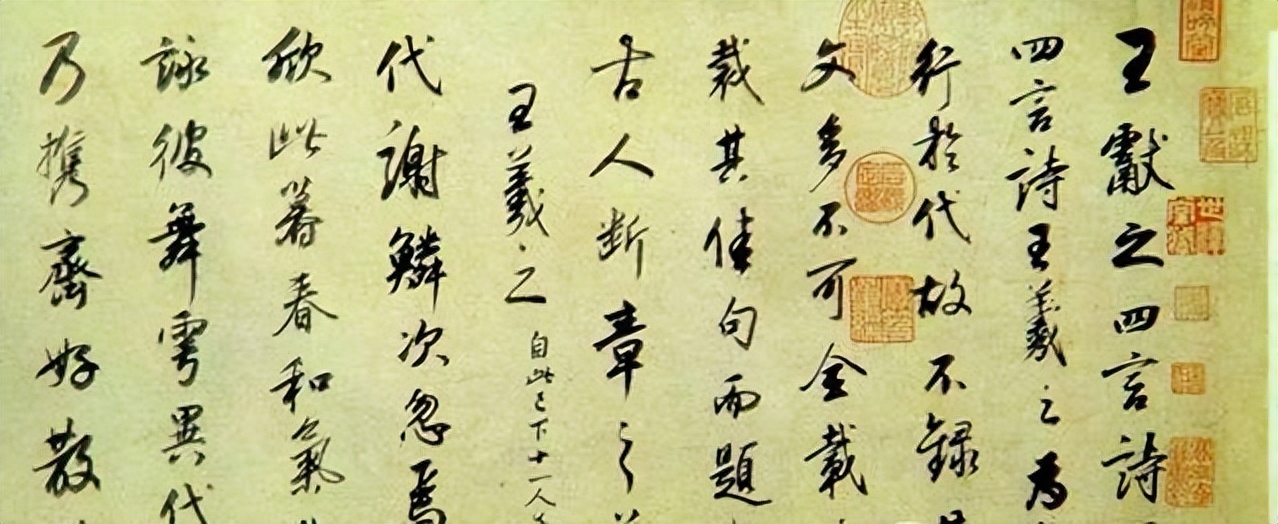 王獻之四言詩
四言詩王羲之為
行於代故不録
文多不可全載
裁其佳句而題
古人斷章之
王羲之 自此已下十一人
代謝鱗次忽焉
欣此暮春和氣
詠彼舞雩異代
乃攜齊好散